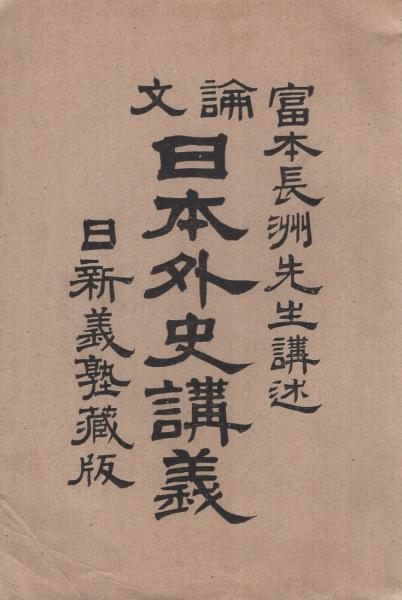 富本長洲先生講述
論文
日本外史講義
日新義塾蔵版